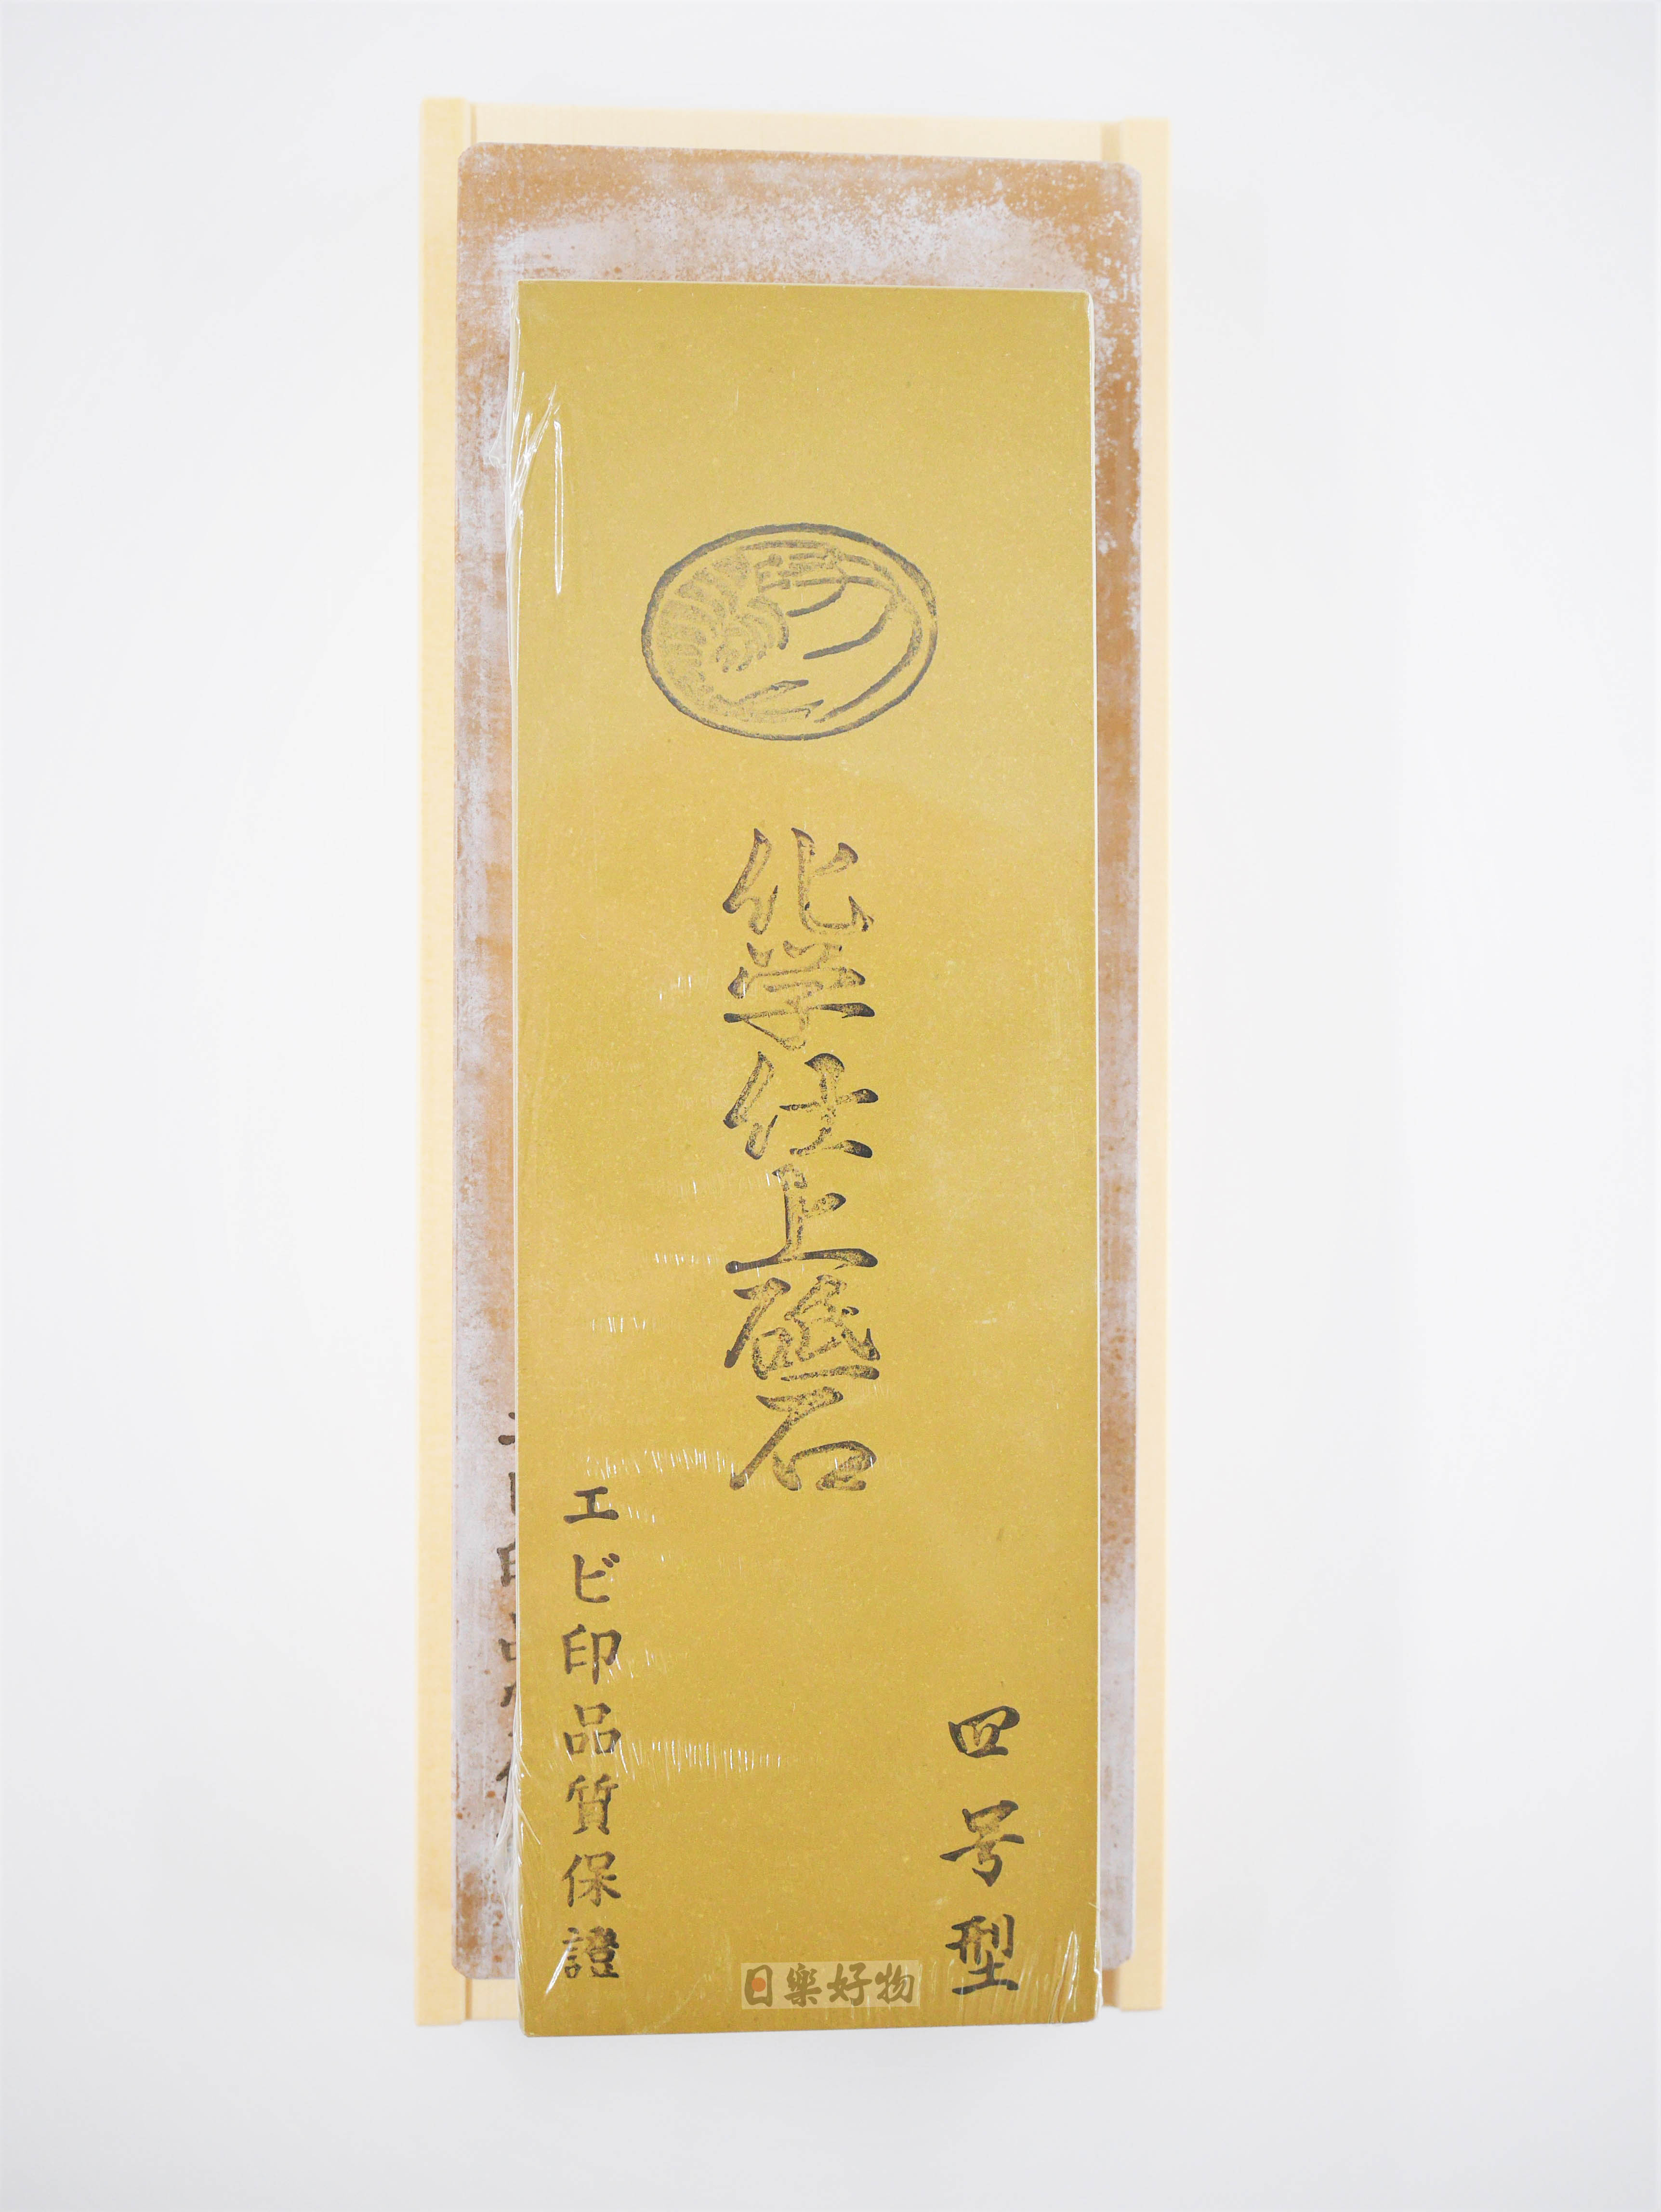 化学仕上砥石
四号型
エビ印品質保證
日樂好物